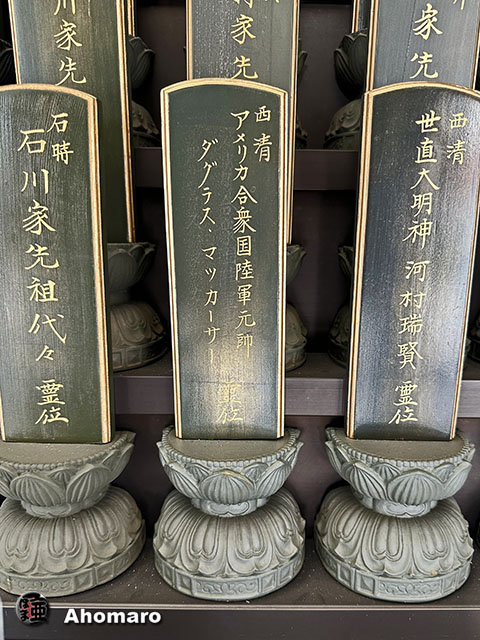 川家先
家先
家先
西清
世直大明神 河村瑞賢 霊位
西清
アメリカ合衆国陸軍元帥
ダグラス・マッカーサー 霊位
石時
石川家先祖代々 霊位
Ahomaro